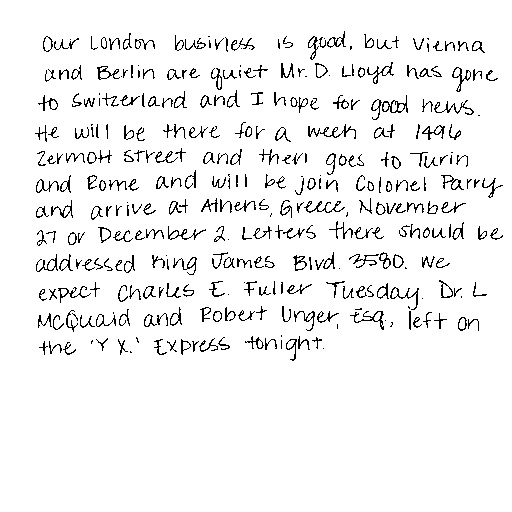 Our London business is good, but Vienna
and Berlin are quiet Mr. D. Lloyd has gone
to Switzerland and I hope for good news.
He will be there for a week at 1496
Zermott Street and then goes to Turin
and Rome and will be join Colonel Parry
and arrive at Athens, Greece, November
27 or December 2. Letters there should be
addressed King James Blvd. 3580. We
expect Charles E. Fuller Tuesday. Dr. L
McQuaid and Robert Unger, Esq., left on
the 'Y X.' Express tonight.